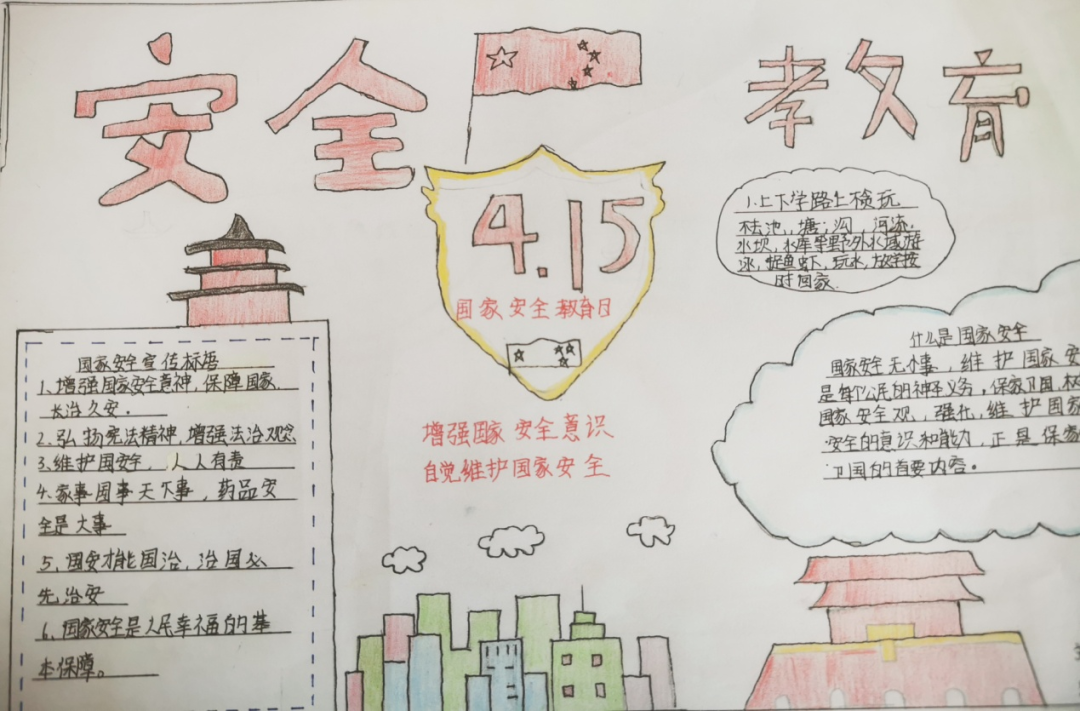 安全教育
4.15
国家安全教育日
增强国家安全意识
自觉维护国家安全
国家安全宣传标语
1、增强国家安全意神,保障国家
长治久安。
2、弘扬宪法精神,增强法治观念
3、维护国安全,人人有责
4、家事国事天下事,药品安
全是大事
5、国安才能国治,治国必
先治安
6、国家安全是人民幸福的基
本保障。
1、上下学路上不贪玩
不去池、塘、沟、河流、
水坝,水库等野外水域游
泳,捉鱼虾、玩水,放学按
时回家.
什么是国家安全
国家安全无小事,维护国家安
是每个公民的神圣义务,保家卫国,
国家安全观,强化,维护国家
安全的意识和能力,正是保家
卫国的首要内容。